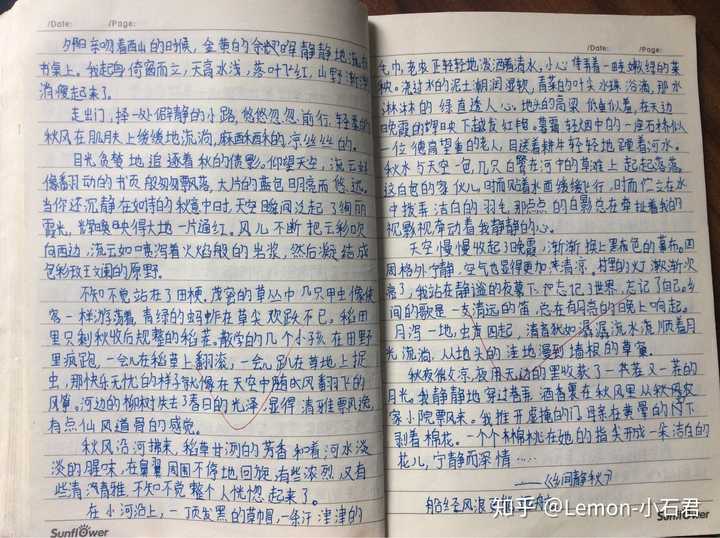 /Date: /Page:
夕阳亲吻着西山的时候,金黄的余晖静静地流在
书桌上。我起身倚窗而立,天高水浅,落叶飞红,山野渐渐
消瘦起来了。
走出门,择一处僻静的小路,悠悠忽忽前行。轻柔的
秋风在肌肤上缓缓地流淌,麻酥酥的,凉丝丝的。
目光贪婪地追逐着秋的倩影。仰望天空,流云好
像翻动的书页般匆匆飘落,大片的蓝色明亮而悠远。
当你还沉静在如诗的秋意中时,天空瞬间泛起了绚丽
霞光,映得大地一片通红。风儿不断把云彩吹
向西边,流云如喷泻着火焰般的岩浆,然后凝结成
色彩斑斓的原野。
不知不觉站在了田梗,茂密的草丛中几只甲虫像侠
客一样游荡着,青绿的蚂蚱在草尖欢跃不已,稻田
里只剩秋收后规整的稻茬。散学的几个小孩在田野
里疯跑,一会儿在稻草上翻滚,一会儿趴在草地上捉
虫,那快乐无忧的样子就像在天空中随风着羽飞的
风筝。河边的柳树失去了春日的光泽,显得清雅飘逸,
有点仙风道骨的感觉。
秋风沿河拂来,稻草甘冽的芳香和着河水淡
淡的腥味,在鼻翼周围不停地回旋,有些浓烈,又有
些清清雅雅,不知不觉整个人恍惚起来了。
在小河沿上,一顶发黑的草帽,一条汗津津的
Sunflower
/Date: /Page:
毛巾,老农正轻轻地泼洒着清水,小心侍弄着一畦嫩绿的菜
秧。浇过水的泥土潮润湿软,青菜的叶尖水珠滴,那水
淋淋的绿直逼人心。地头的高粱你挨着,在天边
晚霞的下越发红艳。暮霭轻烟中的一座石桥似
一位德高望重的老人,目送着耕牛轻轻地蹚着河水。
秋水与天空一色,几只白鹭在河中的草滩上起起落落,
这白色的家伙儿时而贴着水面缓缓飞行,时而伫立在水
中拨弄洁白的羽毛,那点点的白影总在牵扯着我的
视野牵动着我静静的心。
天空慢慢收起了晚霞,渐渐换上黑灰色的幕布。四
周格外宁静,空气也显得更加清凉,村里的灯渐渐次
亮了,我站在静谧的夜幕下,忘记了世界,忘记了自己。乡
间的歌是一支清远的笛,总在有月亮的晚上响起。
月泻一地,虫声四起,清音犹如潺潺流水流顺着月
光流淌,从地头的洼地漫到墙根的草窠。
秋夜微凉,夜用无边的黑收获了一茬又一茬的
月光。我静静地穿过巷弄,酒香裹在秋风里从农
家小院飘来。我推开虚掩的门,母亲在黄晕的灯下
剥着棉花。一个个棉桃在她的指尖开成一朵洁白的
花儿,宁静而深情……
——《乡间静秋》
船经风浪
知乎 @Lemon-小石君
Sunflower